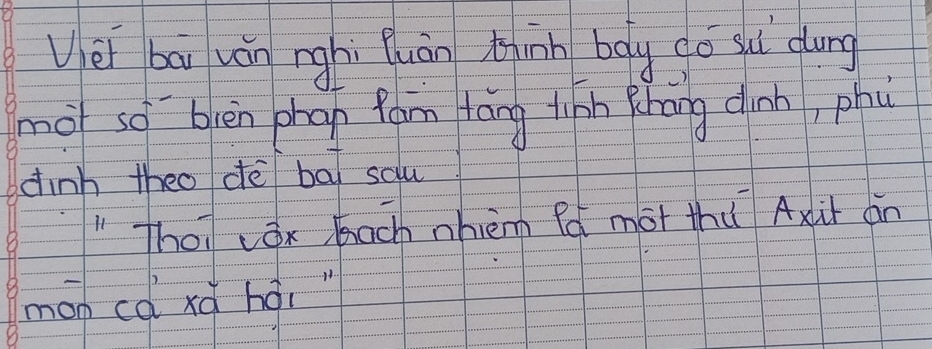 Viết bài văn nghị luận trình bày có sử dụng
một số biện pháp làm tăng tính khẳng định, phủ
định theo đề bài sau
"Thói vô trách nhiệm là một thứ Axit ăn
mòn cả xã hội"